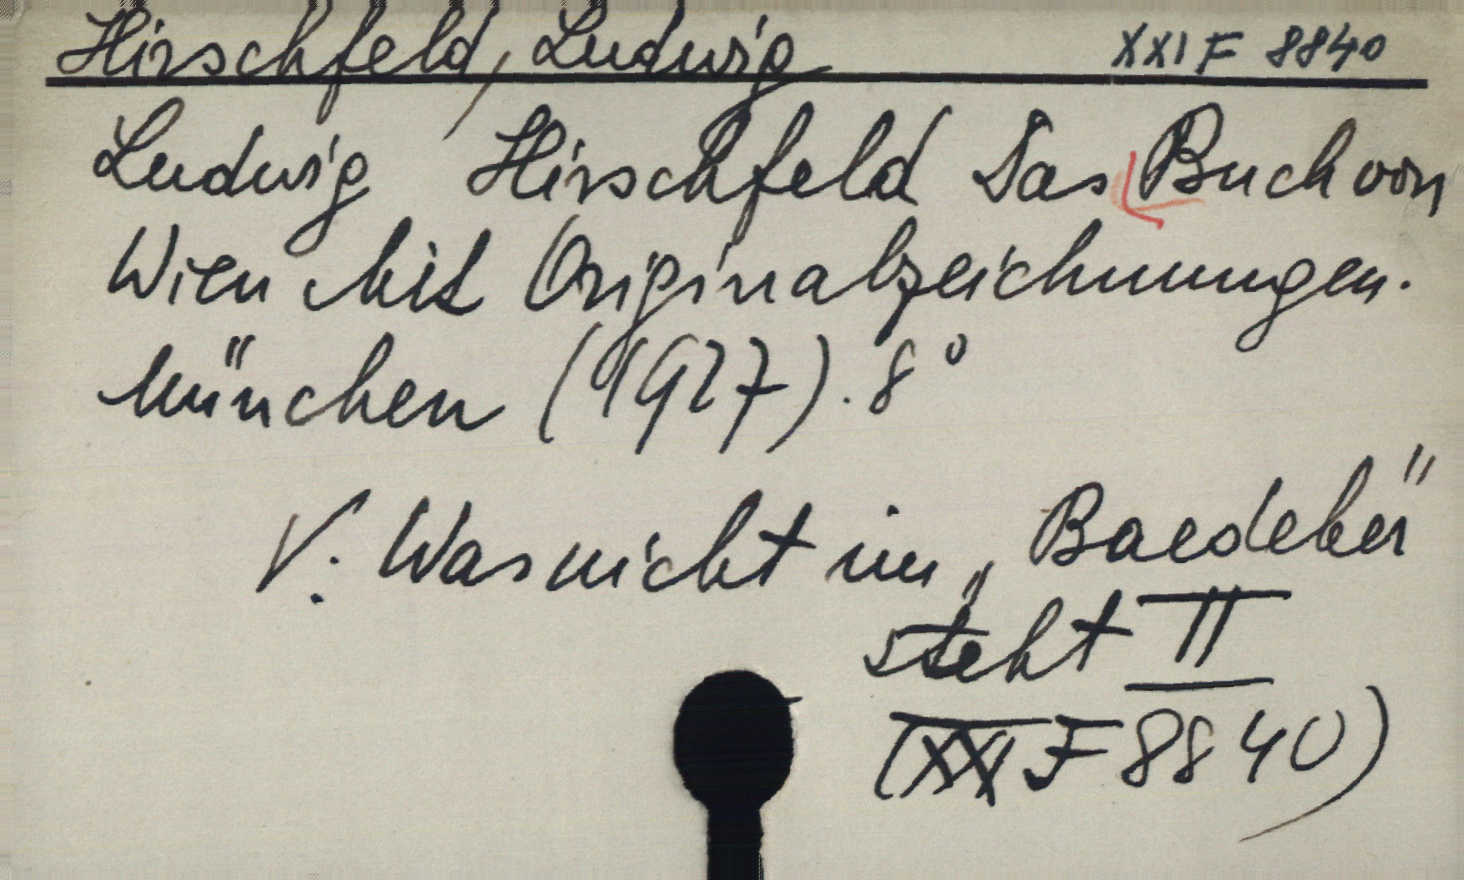 Hirschfeld, Ludwig XXI F 8840
Ludwig Hirschfeld Das Buch von
Wien Mit Originalzeichnungen.
München (1927). 8°
V. Was nicht im „Baedeker"
steht II
(XXI F 8840)